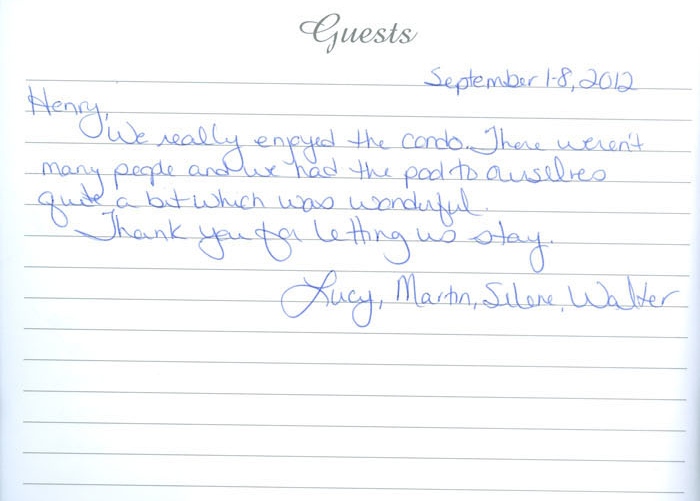 Guests
September 1-8, 2012
Henry,
We really enjoyed the condo. There weren't
many people and we had the pool to ourselves
quite a bit which was wonderful.
Thank you for letting us stay.
Lucy, Martin, Selene, Walter